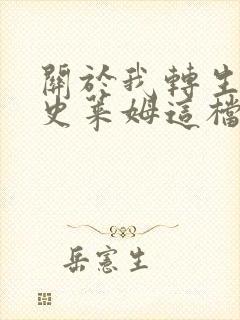 關於我轉生
史萊姆這檔
岳憲生